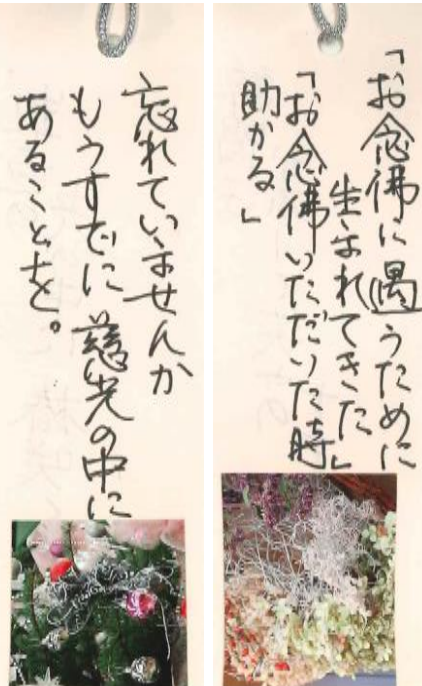 「お念佛に遇うために
生まれてきた」
「お念佛いただいた時
助かる」
忘れていませんか
もうすでに慈光の中に
あることを。